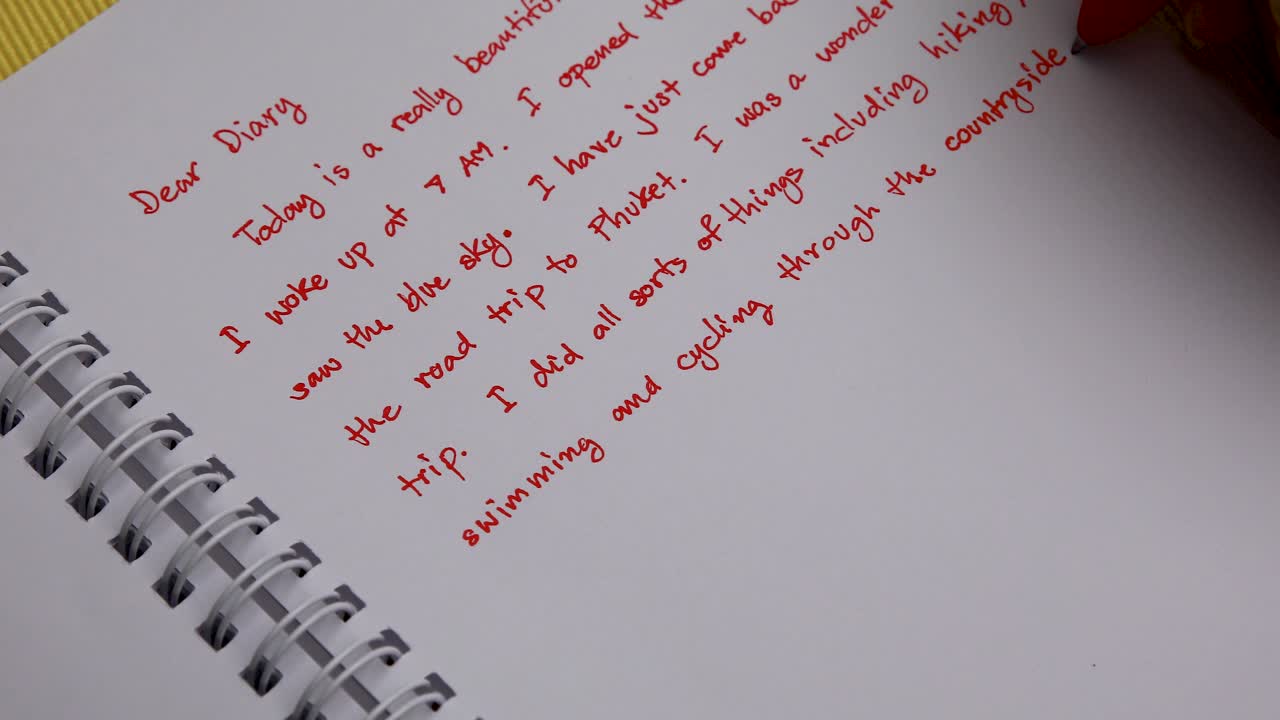 Dear Diary
Today is a really beautifu
I woke up at AM. I opened the
saw the blue sky. I have just come ba
the road trip to Phuket. I was a wonder
trip. I did all sorts of things including hiking
swimming and cycling through the countryside